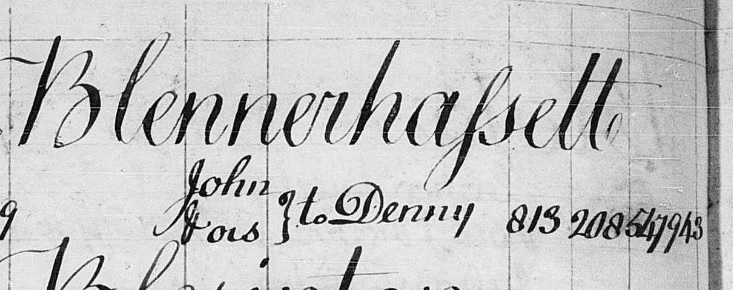 Blennerhaſsett
John
& ors } to Denny 813 208 547943
9